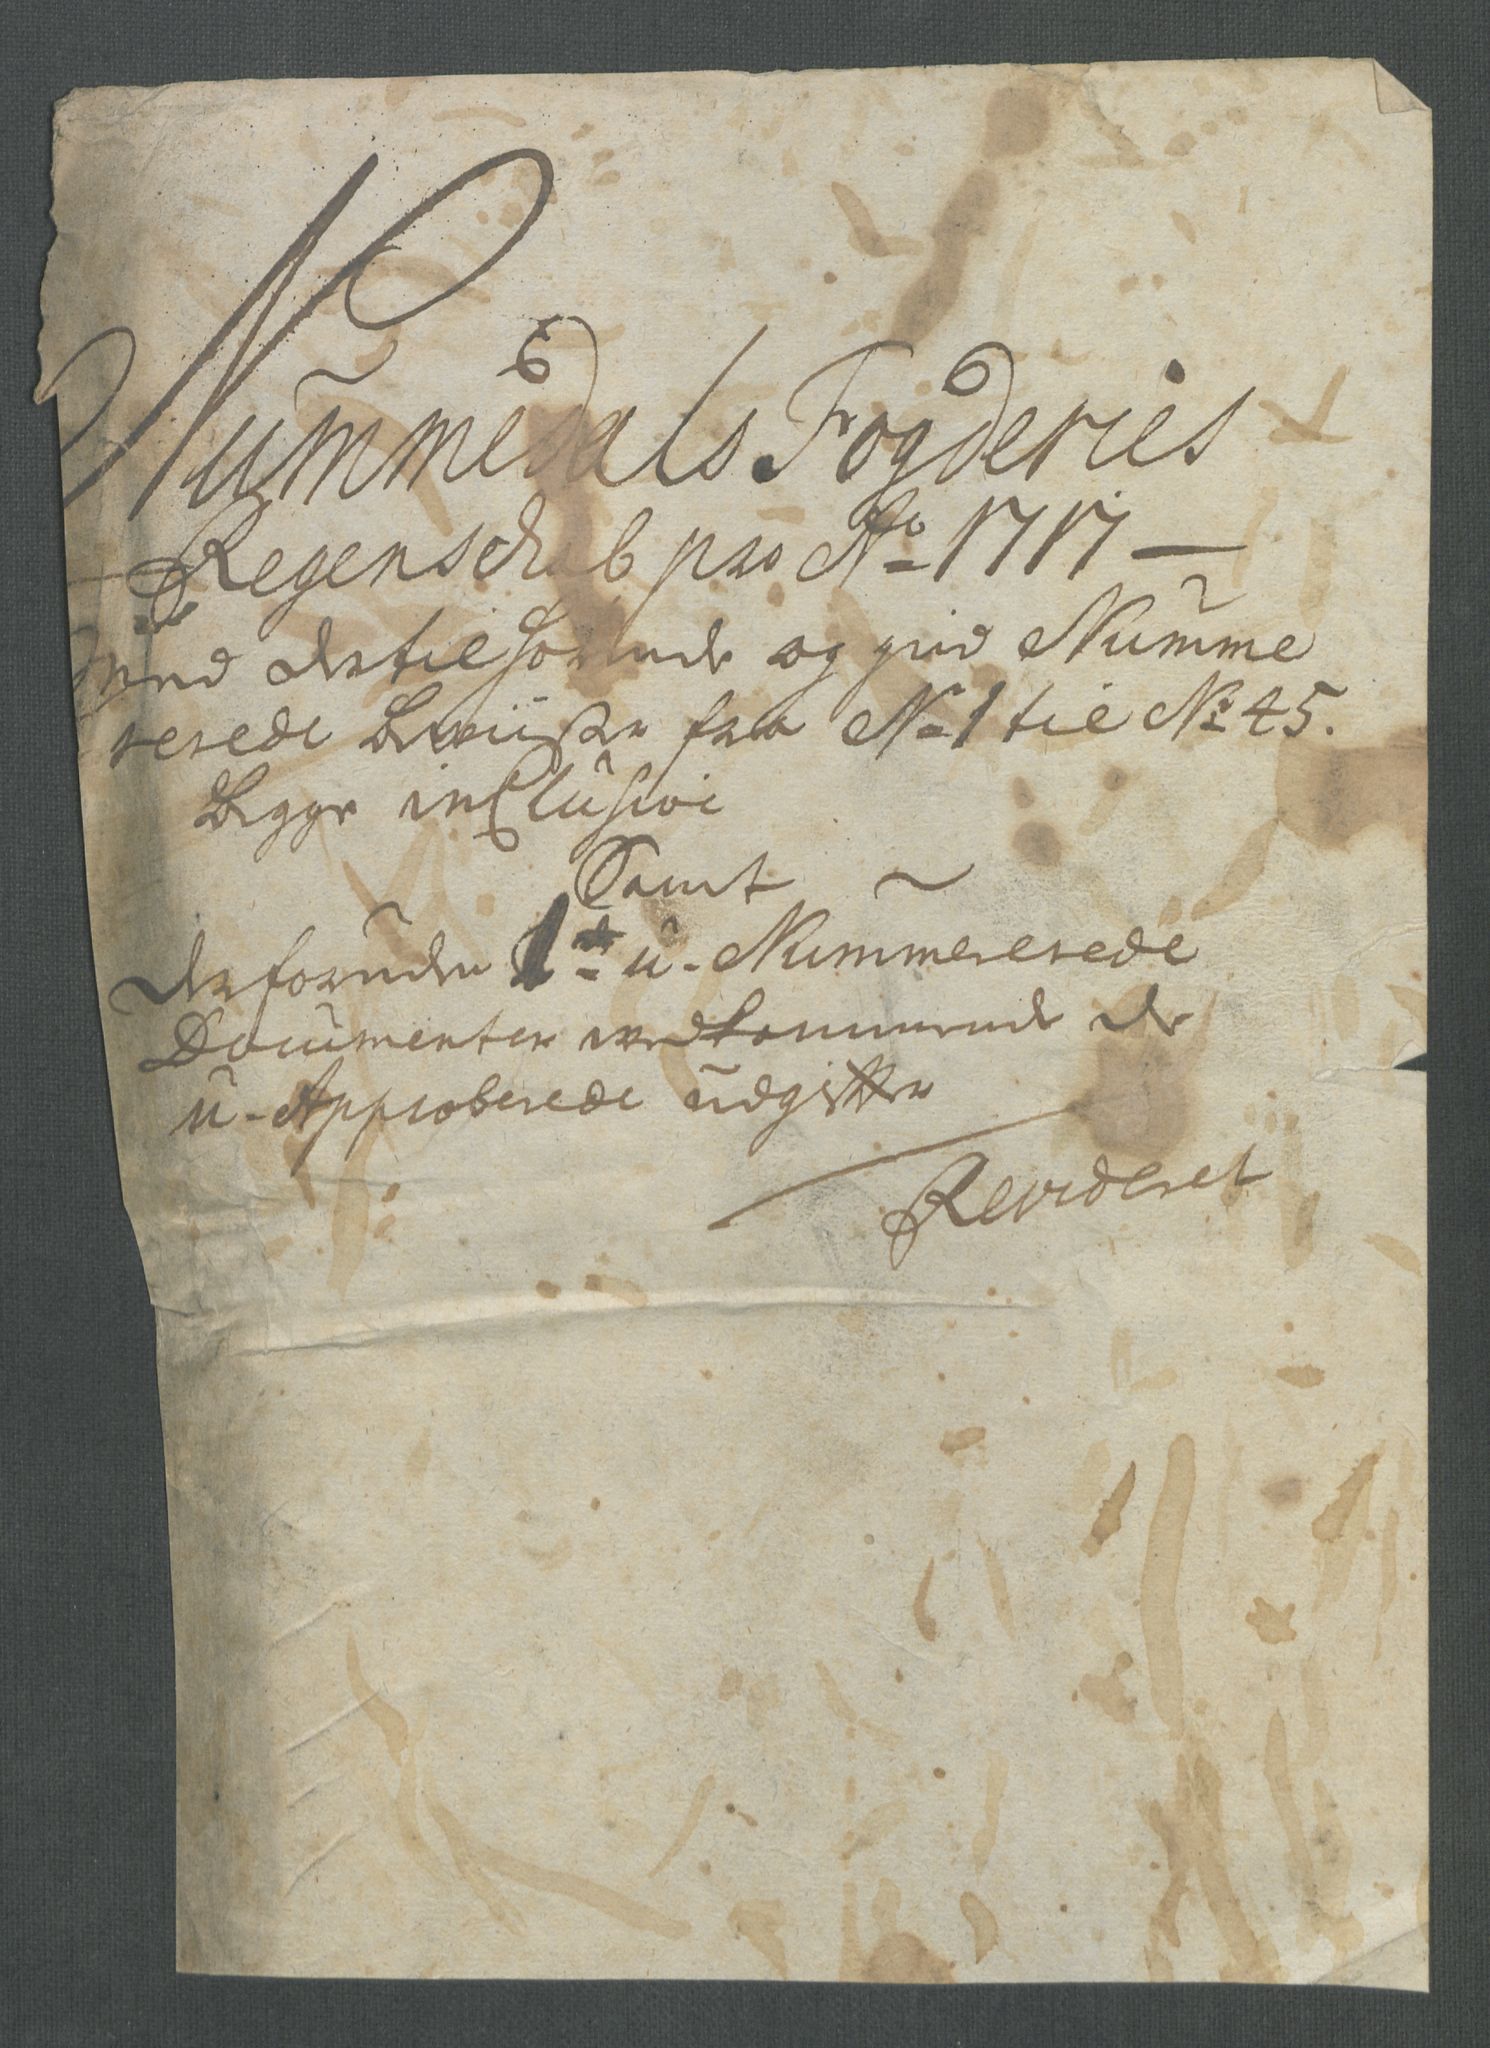 Nummedals Fogderies
Regenschab pro Ao 1717
med dertilhörende og Numme
rerede beviiser fra No 1 til No 45.
begge inclusive
Samt
derforuden u-Nummererede
Documenter vedkommende de
u-Approberede udgifter
Revideret